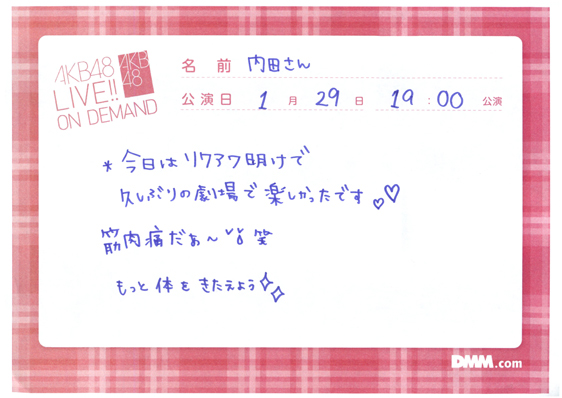 AKB48
LIVE!!
ON DEMAND
AKB
48
名前 内田さん
公演日 1月29日 19:00公演
*今日はリクアワ明けで
久しぶりの劇場で楽しかったです♡♡
筋肉痛だぁ〜 笑
もっと体をきたえよう✧✧
DMM.com